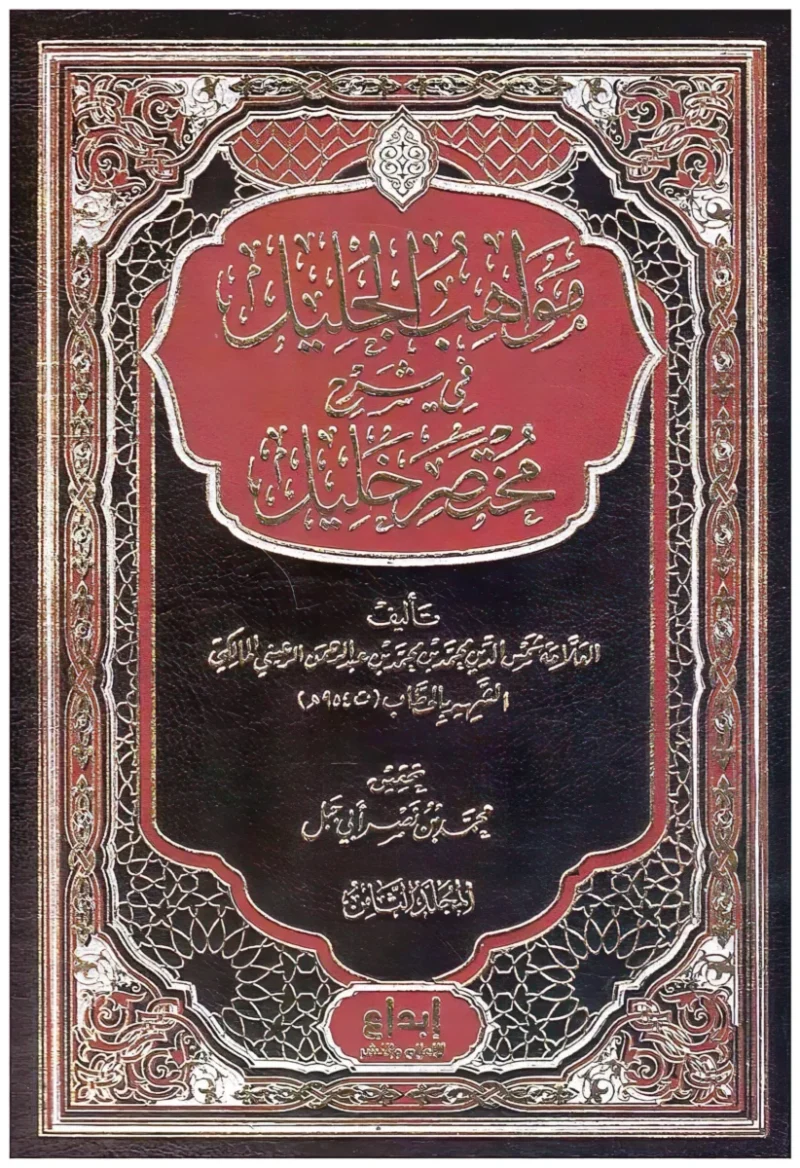 مَوَاهِبُ الْجَلِيْل
فِي شَرْحِ
مُخْتَصَر خَلِيْل
تأليف
العلامة شمس الدين محمد بن محمد بن عبد الرحمن الرعيني المالكي
الشهير بالحطاب (ت ٩٥٤هـ)
تحقيق
محمد بن نصر أبي جبل
المجلد الثامن
إبداع
للإعلام والنشر